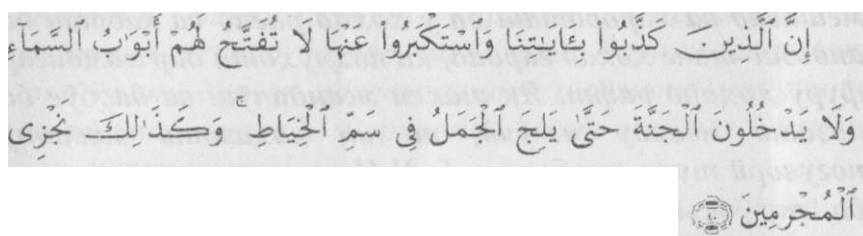 إِنَّ الَّذِينَ كَذَّبُوا بِـَٔايَـٰتِنَا وَاسْتَكْبَرُوا عَنْهَا لَا تُفَتَّحُ لَهُمْ أَبْوَٰبُ السَّمَآءِ
وَلَا يَدْخُلُونَ الْجَنَّةَ حَتَّىٰ يَلِجَ الْجَمَلُ فِى سَمِّ الْخِيَاطِ ۚ وَكَذَٰلِكَ نَجْزِى
ٱلْمُجْرِمِينَ ﴿٤٠﴾